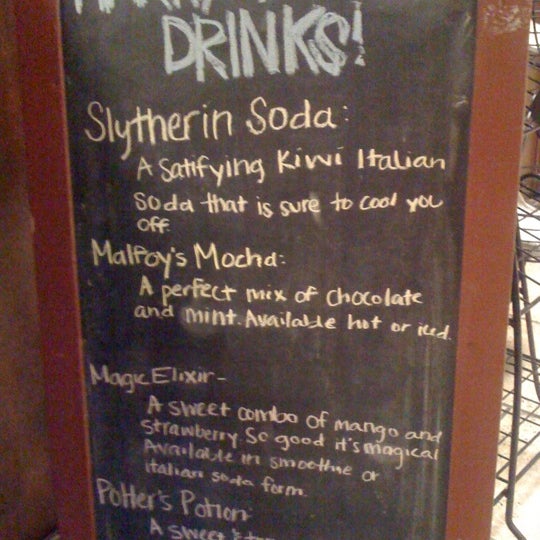 DRINKS!
Slytherin Soda:
A Satifying Kiwi Italian
Soda that is sure to cool you
off.
Malfoy's Mocha:
A perfect mix of chocolate
and mint. Available hot or iced.
Magic Elixir-
A sweet combo of mango and
strawberry. So good it's magical
Available in smoothie or
italian soda form.
Potter's Potion:
A sweet